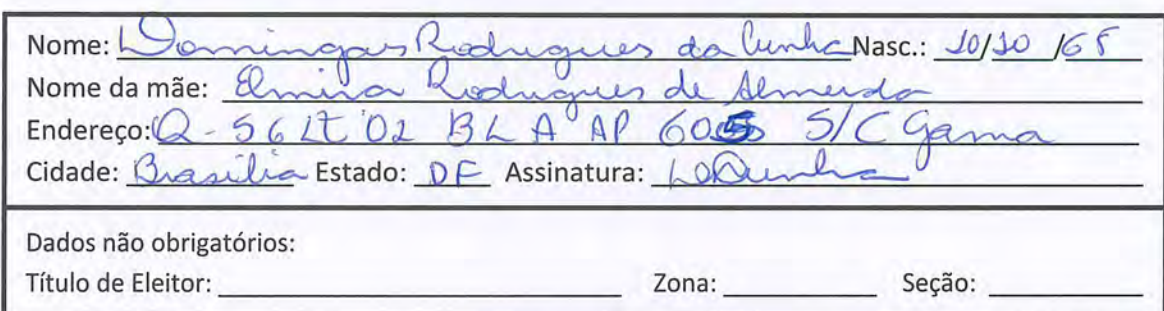 Nome: Domingas Rodrigues da Cunha Nasc.: 10/10/65
Nome da mãe: Elmira Rodrigues de Almeida
Endereço: Q-56 LT 02 BL A AP 605 S/C Gama
Cidade: Brasília Estado: DF Assinatura: Cunha
Dados não obrigatórios:
Título de Eleitor: Zona: Seção: